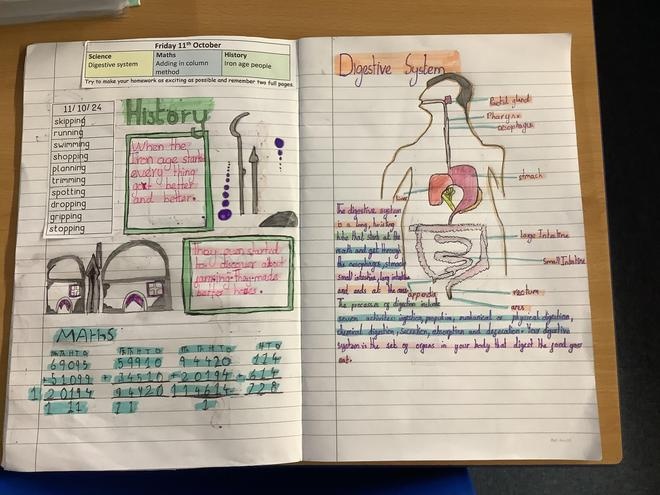 Friday 11th October
Science
Digestive system
Maths
Adding in column
method
History
Iron age people
Try to make your homework as exciting as possible and remember two full pages.
11/10/24
skipping
running
swimming
shopping
planning
trimming
spotting
dropping
gripping
stopping
History
When the
Iron age starts
every thing
got better
and better.
They even started
to discover about
They made
better
MAThs
H T O
69095
+51099
120194
1 11
59910
+34510
94420
11
94420
+20194
114614
1
H T O
114
+614
728
Digestive System
gland
Pharynx
oesophagus
stmach
liver
large Intestine
small Intestine
rectum
anus
appendix
The digestive system
is a long, twisting
tube that starts at the
mouth and
small intestine, large intestine
and ends at the anus.
The process of digestion include
seven activities: ingestion, propulsion, mechanical or physical digestion,
chemical digestion, secretion, absorption and Your digestive
system is the set of organs in your body that digest the food you
eat.